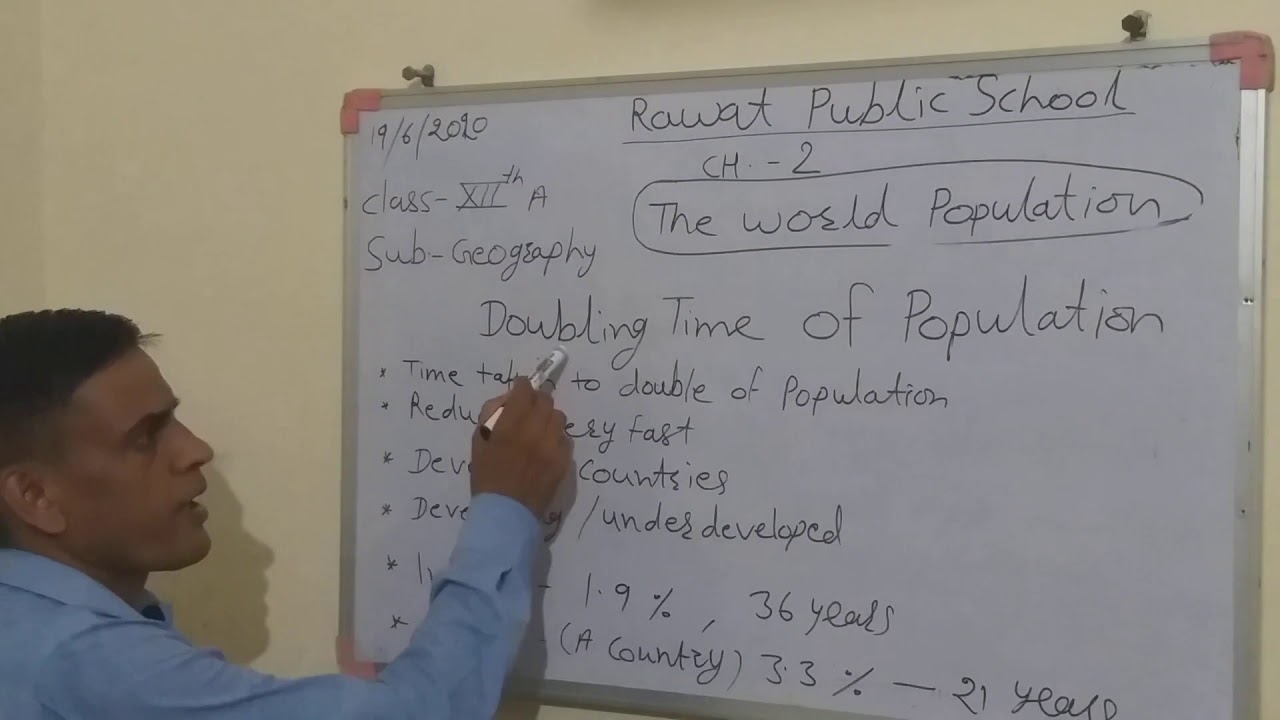 19/6/2020
Rawat Public School
CH. - 2
Class- XIIth A
The World Population
Sub- Geography
Doubling Time of Population
* Time to double of Population
* fast
* Countries
* /underdeveloped
* - 1.9 % , 36 years
* - (A Country) 3.3 % — 21 years